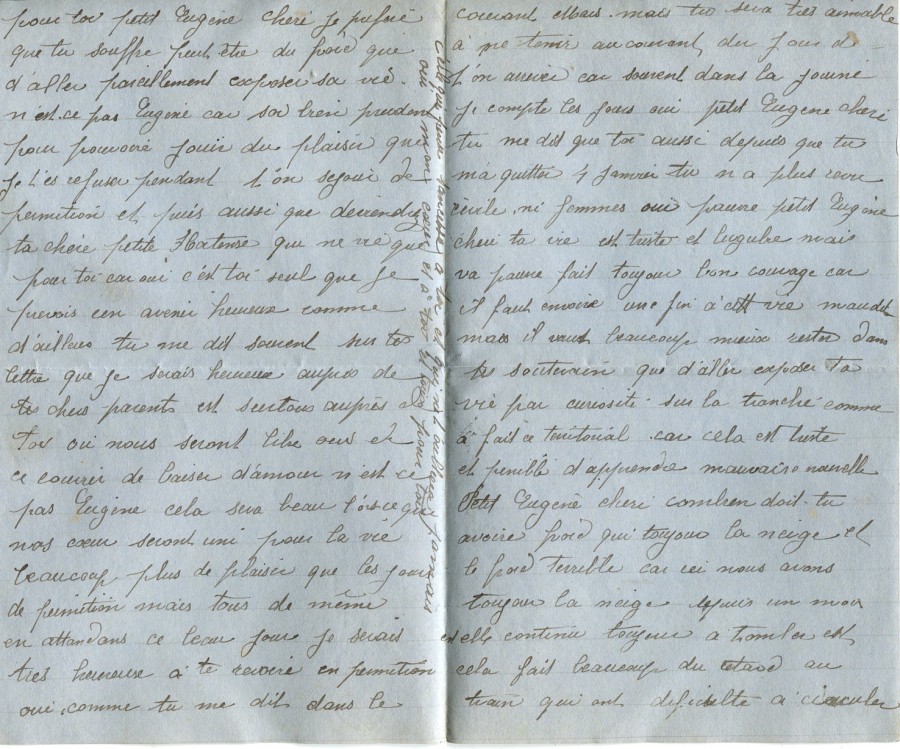 pour toi petit Eugène cheri je préfère
que tu souffre peut être du froid que
d'aller pareillement exposer sa vie
n'est ce pas Eugène car soi bien prudent
pour pouvoir jouir du plaisir que
je t'es refuser pendant t'on sejour de
permition et puis aussi que deviendrez
ta chère petite Hortense qui ne vie que
pour toi car oui c'est toi seul que je
prevois un avenir heureux comme
d'ailleurs tu me dit souvent sur tes
lettre que je serais heureuse auprès de
tes chers parents est surtous auprès de
toi ou nous seront libre
ce couvrir de baiser d'amour n'est ce
pas Eugène cela sera beau l'orsce que
nos cœur seront uni pour la vie
beaucoup plus de plaisir que les jour
de permition mais tous de même
en attandans ce beau jour je serais
très heureuse à te revoire en permition
oui comme tu me dit dans le
courant Mars. mais tu sera très aimable
à me tenir au courant du jour de
t'on arrivé car souvent dans la journé
je compte les jours oui petit Eugène cheri
tu me dit que toi aussi depuis que tu
m'a quitter 4 janvier tu n'a plus revu
civile ni femmes oui pauvre petit Eugène
cheri ta vie est triste et lugubre mais
va pauvre fait toujour bon courage car
il faut envoire une fin à cett vie maudit
mais il vaut beaucoup mieux rester dans
tes souterain que d'aller exposer ta
vie par curiosité sur la tranché comme
à fait ce teritorial car cela est triste
et penible d'apprendre mauvaise nouvelle
Petit Eugène cheri combien doit tu
avoire froid qui toujour la neige et
le froid terrible car ici nous avons
toujour la neige depuis un mois
et elle continu toujour a tomber est
cela fait beaucoup du retard au
train qui ont dificulte a circuler
oui mon cœur et à toi et pour toujour